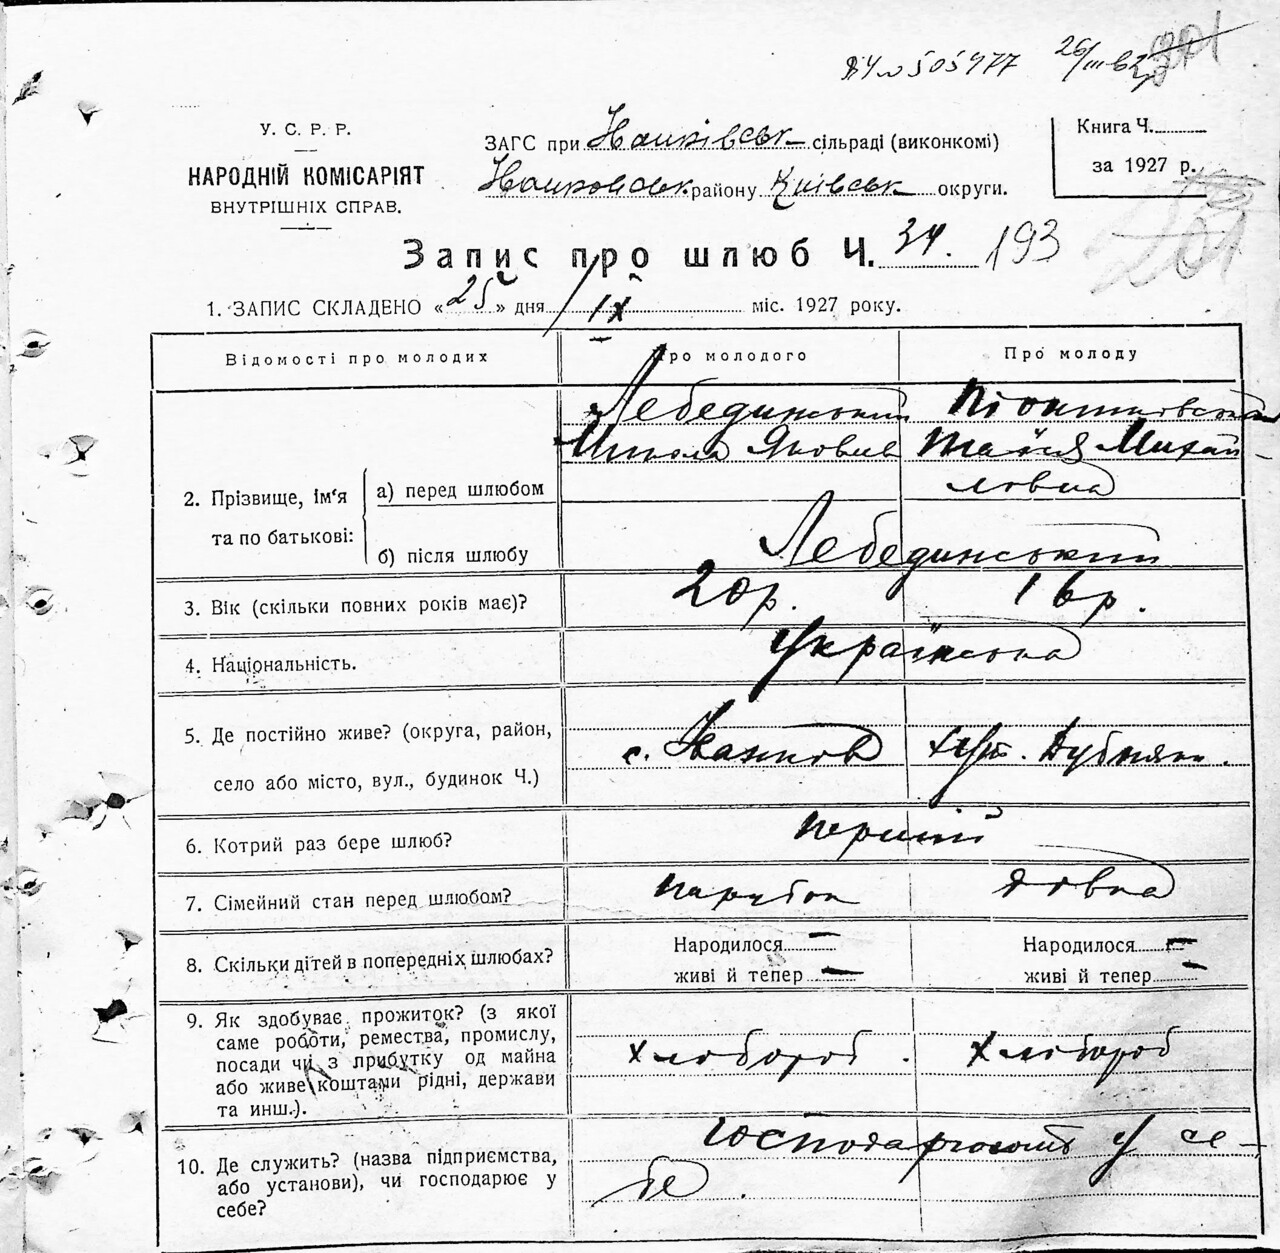 505977 26/III-62
У. С. Р. Р.
НАРОДНІЙ КОМІСАРІЯТ
ВНУТРІШНІХ СПРАВ.
ЗАГС при сільраді (виконкомі)
району Київськ округи.
Книга Ч.
за 1927 р.
201
Запис про шлюб Ч. 34. 193
1. ЗАПИС СКЛАДЕНО «25» дня IX міс. 1927 року.
Відомості про молодих
Про молодого
Про молоду
2. Прізвище, ім'я та по батькові:
а) перед шлюбом
Лебединський
Микола Яковив
Таїсія Михай-
ловна
б) після шлюбу
Лебединський
3. Вік (скільки повних років має)?
20р.
16р.
4. Національність.
Українська
5. Де постійно живе? (округа, район,
село або місто, вул., будинок Ч.)
с.
хут. Дубняки.
6. Котрий раз бере шлюб?
перший
7. Сімейний стан перед шлюбом?
парубок
дівка
8. Скільки дітей в попередніх шлюбах?
Народилося —
живі й тепер —
Народилося —
живі й тепер —
9. Як здобуває прожиток? (з якої
саме роботи, ремества, промислу,
посади чи з прибутку од майна
або живе коштами рідні, держави
та инш.).
хлібороб.
хлібороб
10. Де служить? (назва підприємства,
або установи), чи господарює у
себе?
господарюють у се-
бе.